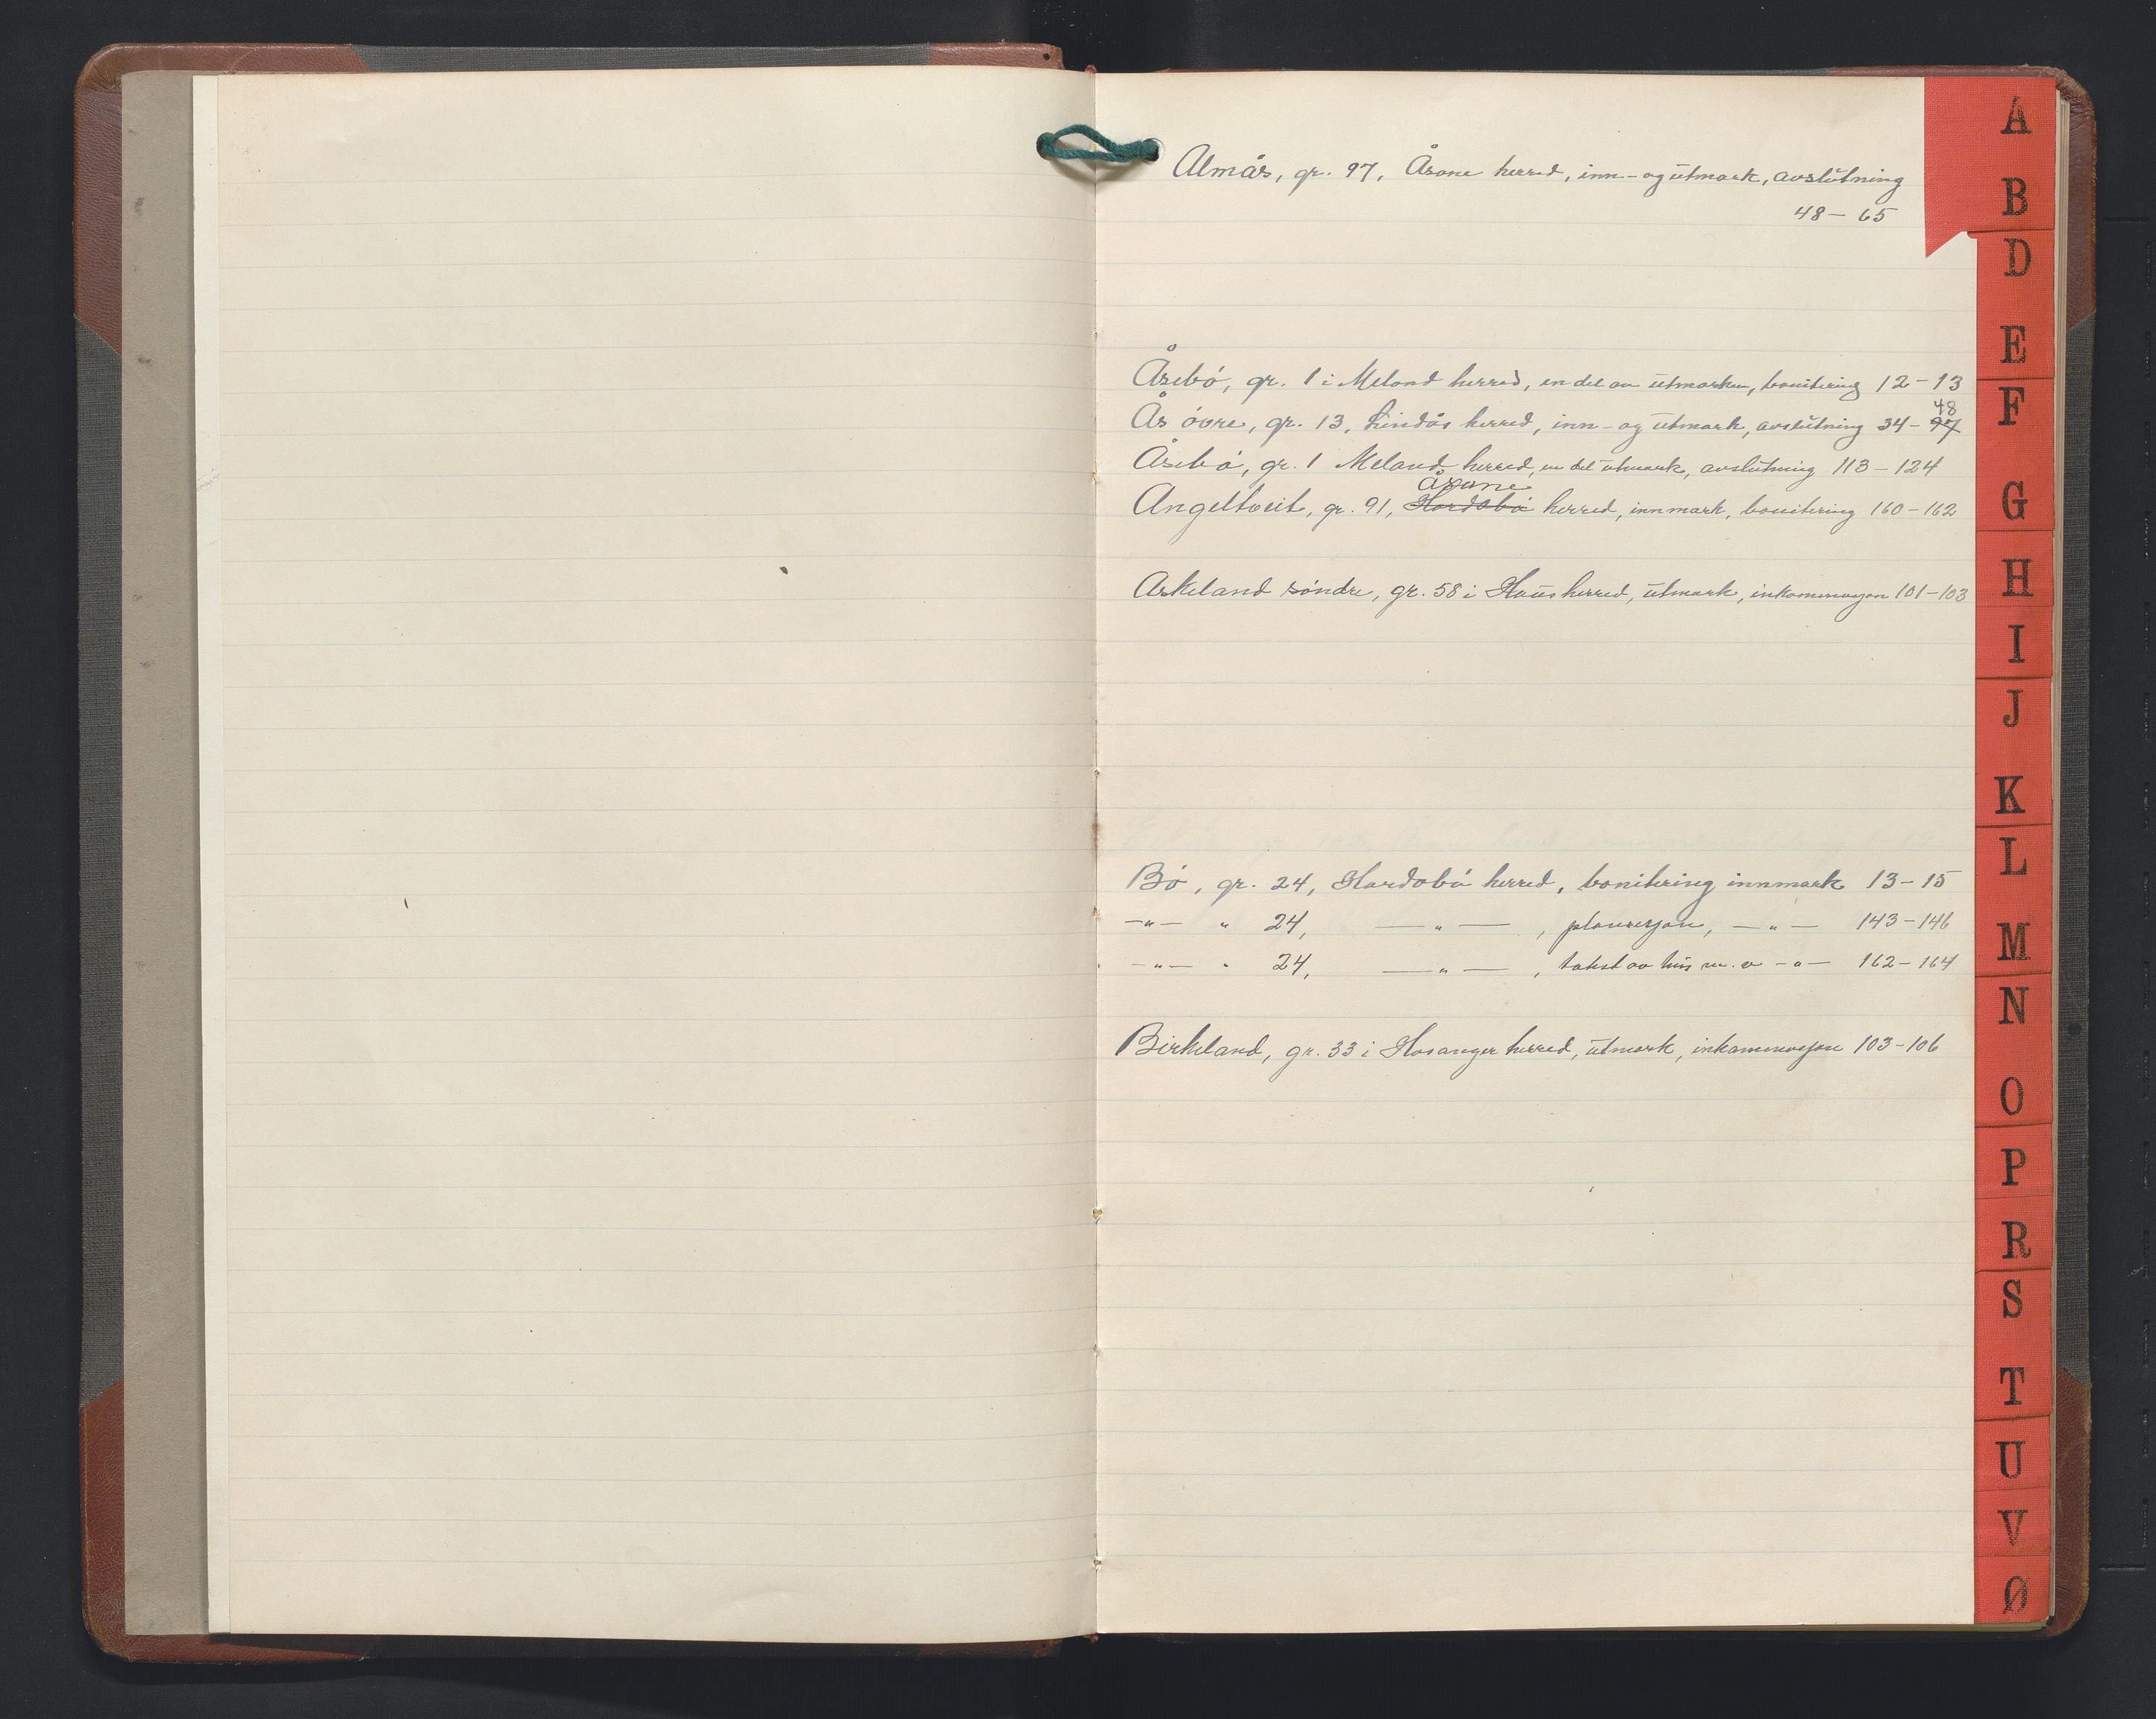 Almås, gr. 97, Åsane herred, inn- og utmark, avslutning
48 - 65
Åsebø, gr. 1 i Meland herred, en del av utmarken, bonitering 12 - 13
48
Ås øvre, gr. 13, Lindås herred, inn- og utmark, avslutning 34 - 97
Åsebø, gr. 1 Meland herred, en del utmark, avslutning 113 - 124
Åsane
Angeltveit, gr. 91, Hordabø herred, innmark, bonitering 160 - 162
Askeland søndre, gr. 58 i Haus herred, utmark, inkaminasjon 101 - 103
Bø, gr. 24, Hordabø herred, bonitering innmark 13 - 15
-"- " 24, -"- , planesjon, -"- 143 - 146
-"- " 24, -"- , takst av hus m.v -"- 162 - 164
Birkeland, gr. 33 i Hosanger herred, utmark, inkaminasjon 103 - 106
A
B
D
E
F
G
H
I
J
K
L
M
N
O
P
R
S
T
U
V
Ø